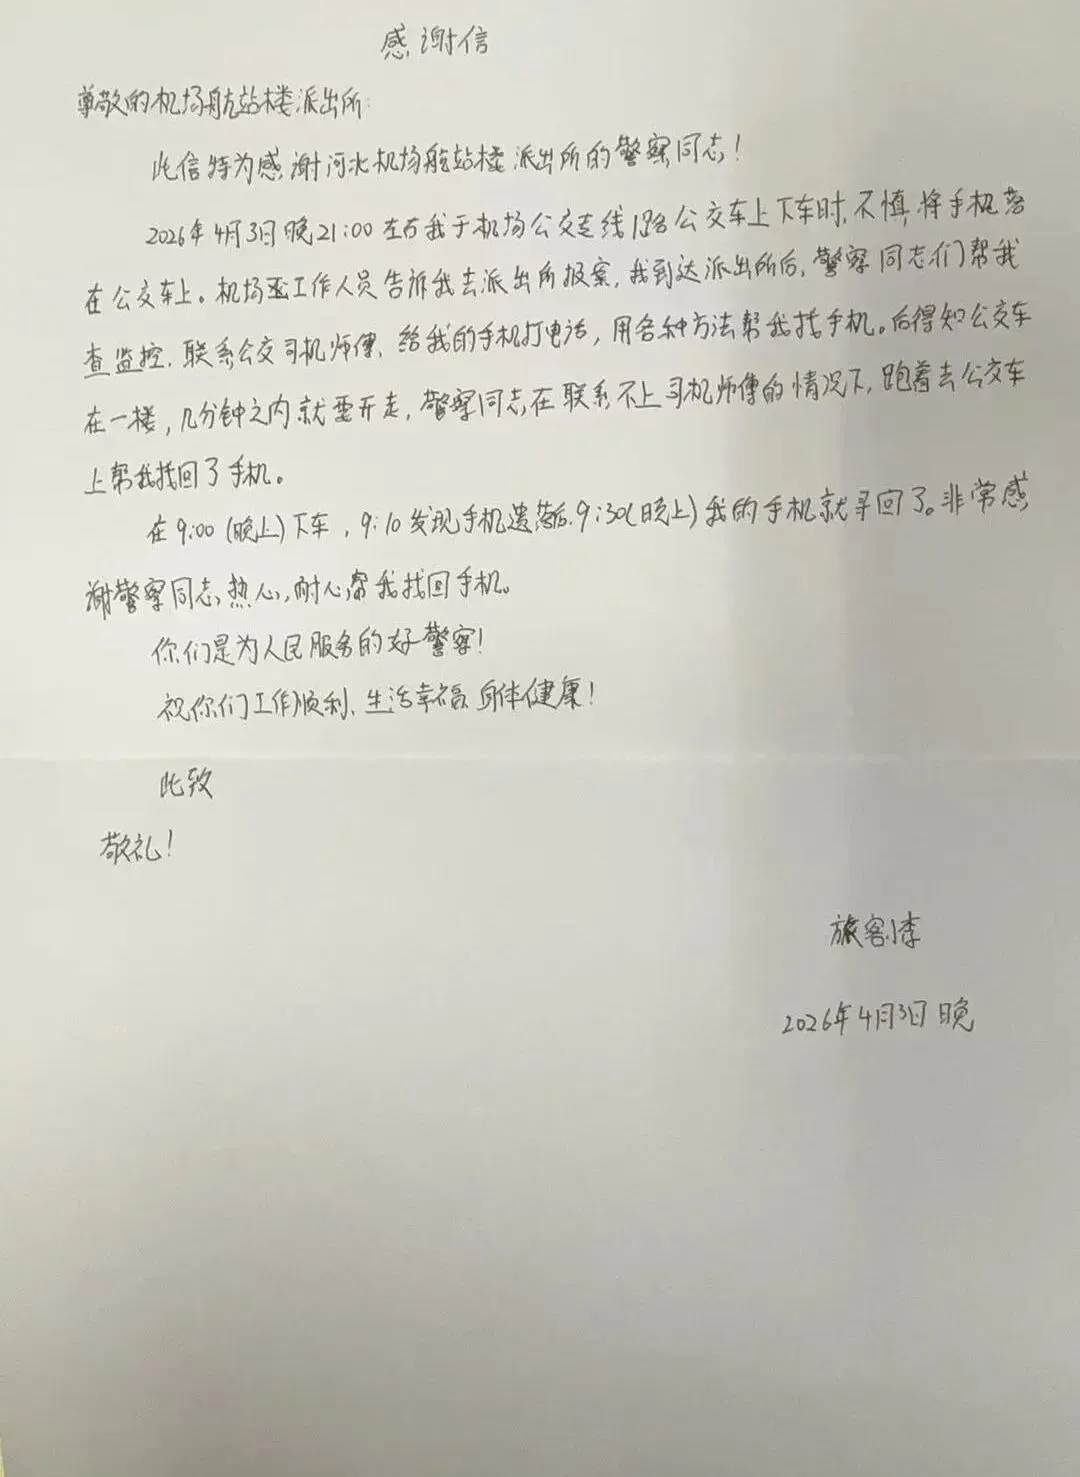 感谢信
尊敬的机场航站楼派出所:
此信特为感谢河北机场航站楼派出所的警察同志!
2026年4月3日晚21:00左右我于机场公交走线1路公交车上下车时,不慎,将手机落
在公交车上。机场工作人员告诉我去派出所报案,我到达派出所后,警察同志们帮我
查监控、联系公交司机师傅、给我的手机打电话,用各种方法帮我找手机。后得知公交车
在一楼,几分钟之内就要开走,警察同志在联系不上司机师傅的情况下,跑着去公交车
上帮我找回了手机。
在9:00(晚上)下车,9:10发现手机遗落后,9:30(晚上)我的手机就寻回了。非常感
谢警察同志,热心,耐心,帮我找回手机。
你们是为人民服务的好警察!
祝你们工作顺利、生活幸福、身体健康!
此致
敬礼!
旅客小李
2026年4月3日晚